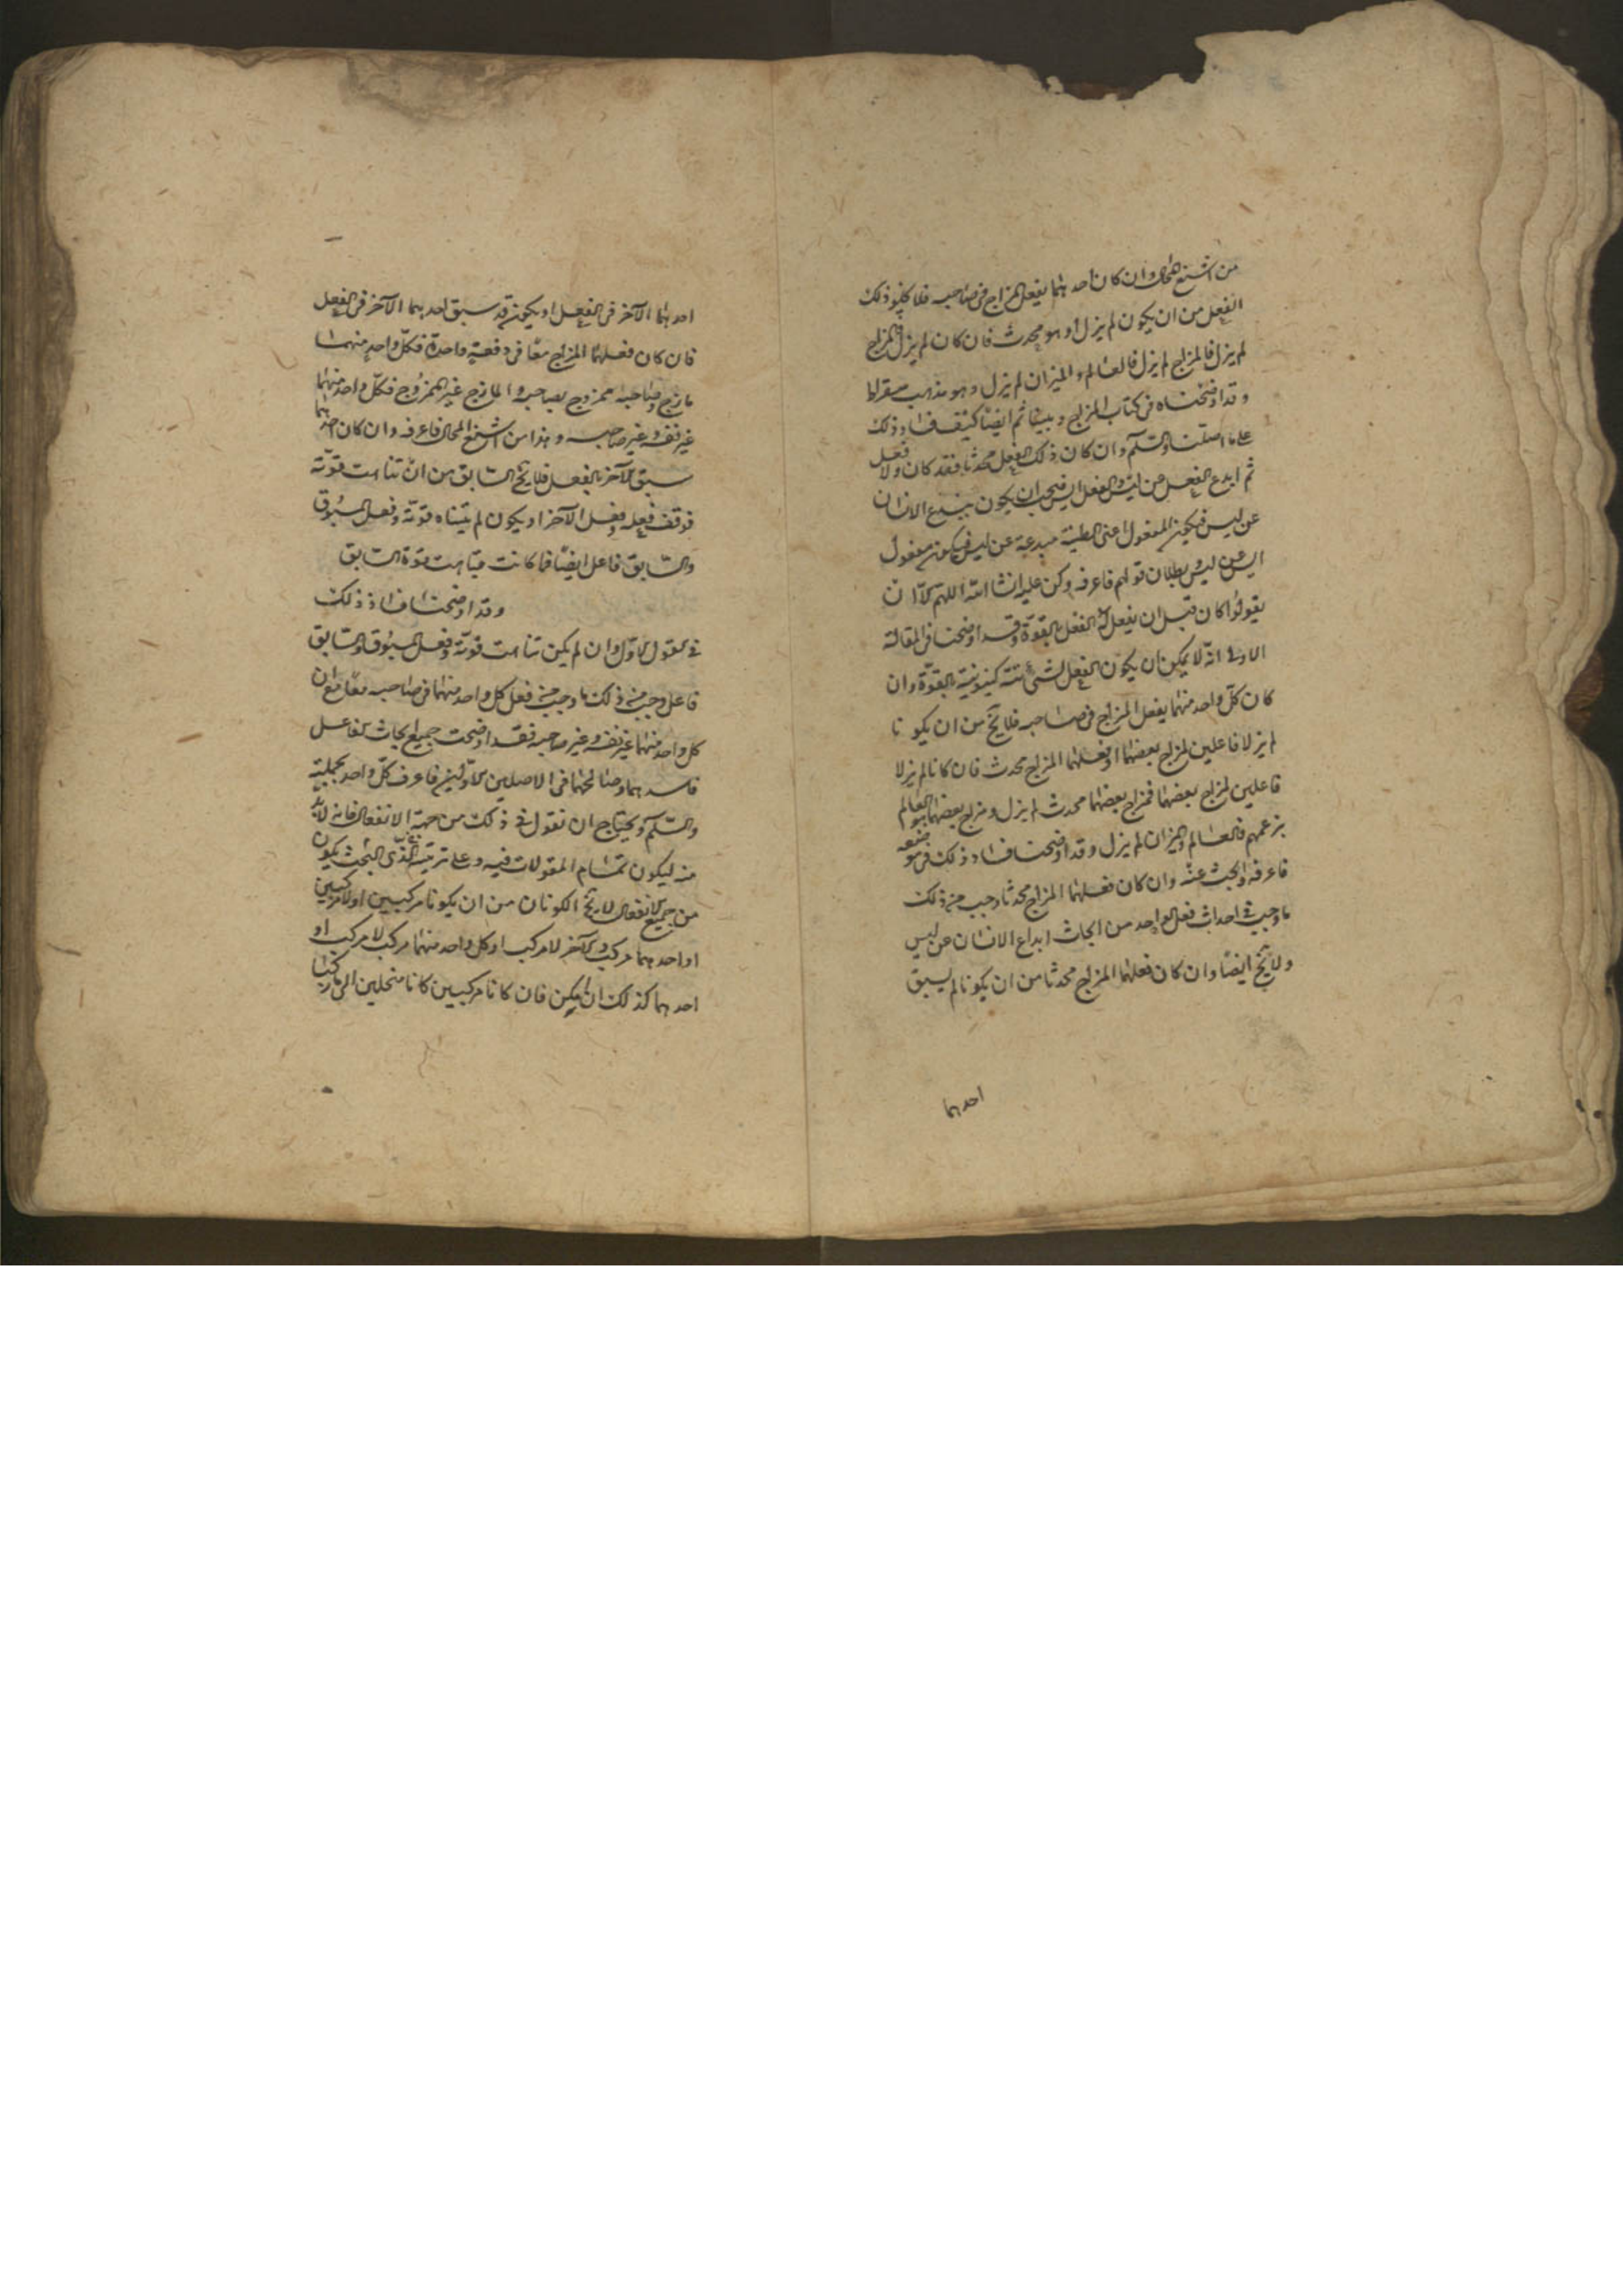 من اشنع المحال وان كان احدهما يفعل المزاج فى صاحبه فلا يخلو ذلك
الفعل من ان يكون لم يزل او هو محدث فان كان لم يزل فالمزاج
لم يزل فالمزاج لم يزل فالعالم والميزان لم يزل وهو مذهب سقراط
وقد اوضحناه فى كتاب المزاج وبينا ثم ايضًا كيف فساد ذلك
على ما اصلنا والسلم وان كان ذلك الفعل محدثا فقد كان ولا فعل
ثم ابدع الفعل من ليس والفعل ايس فيجب ان يكون جميع الانسان
عن ليس فيكون المفعول اعنى الطينة مبدعة عن ليس فيكون مفعول
ايس عن ليس وبطلان قولهم فاعرفه وكن عليه انشا الله اللهم الّا ان
يقولوا كان قبل ان يفعل له الفعل بالقوّة وقد اوضحنا فى المقالة
الاولى انّه لا يمكن ان يكون الفعل لشئ كينونية بالقوّة وان
كان كلّ واحد منهما يفعل المزاج فى صاحبه فلا يخ من ان يكونا
لم يزلا فاعلين لمزاج بعضهما او فعلهما المزاج محدث فان كانا لم يزلا
فاعلين لمزاج بعضهما فمزاج بعضهما محدث لم يزل ومزاج بعضهما هو العالم
بزعمهم فالعالم والميزان لم يزل وقد اوضحنا فساد ذلك فى موضعه
فاعرفه وابحث عنه وان كان فعلهما المزاج محدثا وجب من ذلك
ما وجب فى احداث فعل الواحد من ابحاث ابداع الانسان عن ليس
ولا يخ ايضًا وان كان فعلهما المزاج محدثا من ان يكونا لم يسبق
احدهما
احدهما الآخر فى الفعل او يكون قد سبق احدهما الآخر فى الفعل
فان كان فعلهما المزاج معًا فى دفعة واحدة فكلّ واحد منهما
مازج وصاحبه ممزوج بصاحبه والمازج غير الممزوج فكلّ واحد منهما
غير نفسه وغير صاحبه وهذا من اشنع المحال فاعرفه وان كان احدهما
سبق الآخر بالفعل فلا يخ السّابق من ان تناهت قوّته
فوقف فعله وفعل الآخر او يكون لم يتناه قوّته وفعل المسبوق
والسّابق فاعل ايضًا فما كانت متناهت قوّة السّابق
وقد اوضحنا فساد ذلك
فى القول الاوّل وان لم يكن تناهت قوّته وفعل المسبوق والسّابق
فاعل وجب من ذلك ما وجب من فعل كل واحد منهما فى صاحبه معًا مع ان
كل واحد منهما غير نفسه وغير صاحبه فقد اوضحت جميع ابحاث تفاعل
فاسدهما وصالحهما فى الاصلين الاوّلين فاعرف كلّ واحد بجملته
والسّلم ونحتاج ان نقول فى ذلك من جهة الانفعال فانه لا بدّ
منه ليكون تمام المقولات فيه وعلى ترتيب الذّى البحث يكون
من جميع الانفعال لا يخ الكونان من ان يكونا مركبين او لا مركبين
او احدهما مركب والآخر لا مركب او كل واحد منهما مركب لا مركب او
احدهما كذلك ان امكن فان كانا مركبين كانا منحلين الى ما ركبا